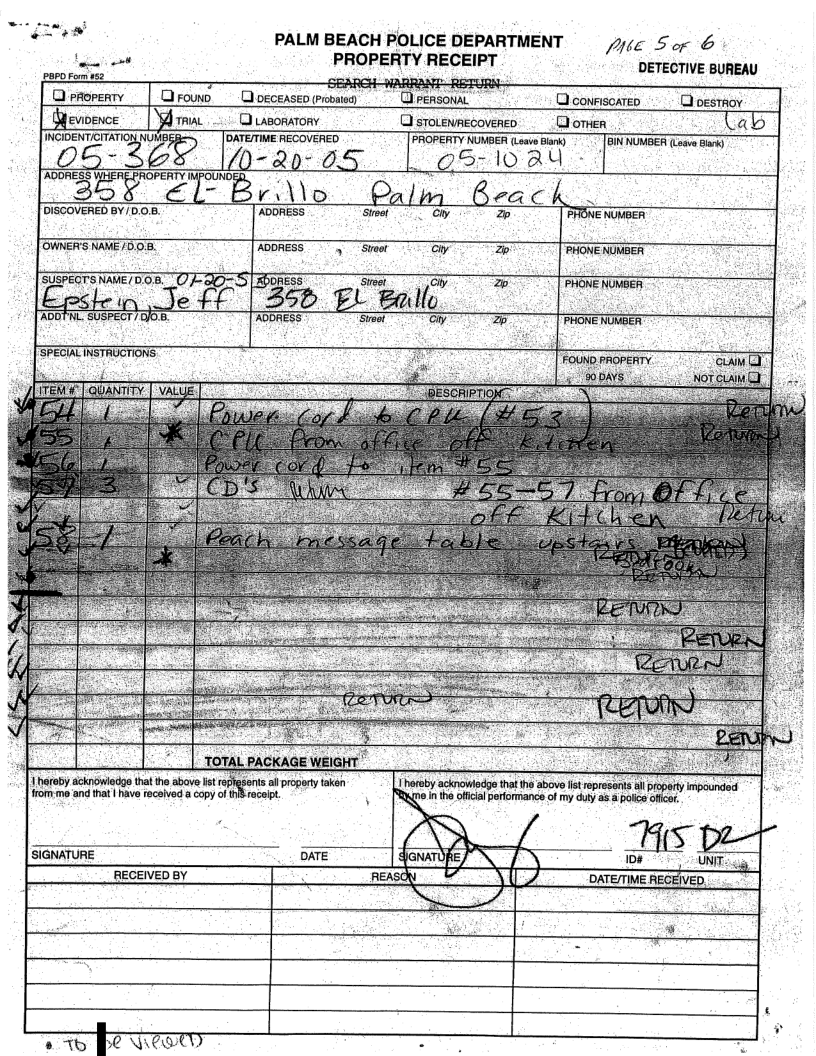 PALM BEACH POLICE DEPARTMENT
PROPERTY RECEIPT
PAGE 5 OF 6
DETECTIVE BUREAU
PBPD Form #52
SEARCH WARRANT RETURN
PROPERTY FOUND DECEASED (Probated) PERSONAL CONFISCATED DESTROY
EVIDENCE TRIAL LABORATORY STOLEN/RECOVERED OTHER Lab
INCIDENT/CITATION NUMBER DATE/TIME RECOVERED PROPERTY NUMBER (Leave Blank) BIN NUMBER (Leave Blank)
05-368 10-20-05 05-1024
ADDRESS WHERE PROPERTY IMPOUNDED
358 El-Brillo Palm Beach
DISCOVERED BY / D.O.B. ADDRESS Street City Zip PHONE NUMBER
OWNER'S NAME / D.O.B. ADDRESS Street City Zip PHONE NUMBER
SUSPECT'S NAME / D.O.B. 01-20-5 ADDRESS Street City Zip PHONE NUMBER
Epstein, Jeff 358 El Brillo
ADDT'NL. SUSPECT / D/O.B. ADDRESS Street City Zip PHONE NUMBER
SPECIAL INSTRUCTIONS FOUND PROPERTY CLAIM
90 DAYS NOT CLAIM
ITEM # QUANTITY VALUE DESCRIPTION
54 1 Power cord to CPU (#53) RETURN
55 1 CPU from office off kitchen RETURN
56 1 Power cord to item #55
57 3 CD's #55-57 from Office
off Kitchen
58 1 Peach message table upstairs
RETURN
RETURN
RETURN
RETURN
RETURN RETURN
RETURN
TOTAL PACKAGE WEIGHT
I hereby acknowledge that the above list represents all property taken
from me and that I have received a copy of this receipt.
I hereby acknowledge that the above list represents all property impounded
by me in the official performance of my duty as a police officer.
7915 D2
SIGNATURE DATE SIGNATURE ID# UNIT
RECEIVED BY REASON DATE/TIME RECEIVED
TO be VIEWED